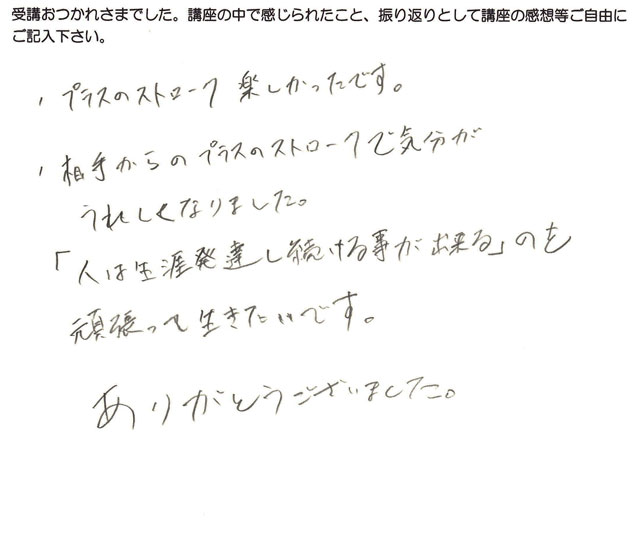 受講おつかれさまでした。講座の中で感じられたこと、振り返りとして講座の感想等ご自由に
ご記入下さい。
、プラスのストローク 楽しかったです。
、相手からのプラスのストロークで気分が
うれしくなりました。
「人は生涯発達し続ける事が出来る」のを
頑張って生きたいです。
ありがとうございました。